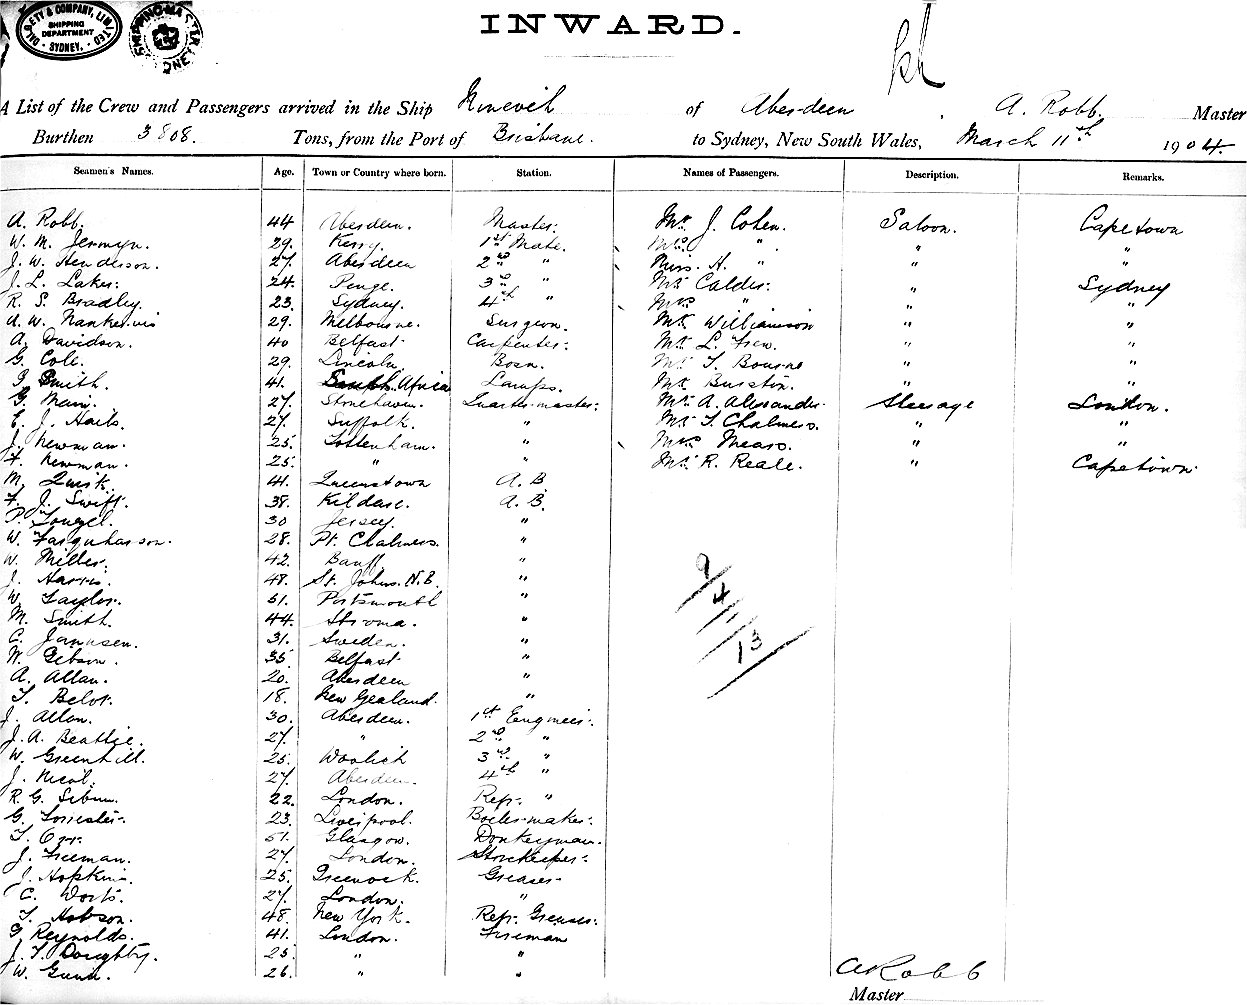 DALGETY & COMPANY, LIMITED
SHIPPING DEPARTMENT
SYDNEY.
INWARD.
A List of the Crew and Passengers arrived in the Ship Ninevih of Aberdeen, A. Robb. Master
Burthen 3808. Tons, from the Port of Brisbane. to Sydney, New South Wales, March 11th 1904.
Seamen's Names. Age. Town or Country where born. Station. Names of Passengers. Description. Remarks.
A. Robb. 44 Aberdeen. Master. Mr. J. Cohen. Saloon. Capetown
W. M. Jermyn. 29. Kerry. 1st Mate. Mrs. " " "
J. W. Henderson. 27. Aberdeen 2nd " Miss. A. " " "
J. L. Lakes. 24. Penge. 3rd " Mr. Calder. " Sydney
R. S. Bradley. 23. Sydney. 4th " Mrs " " "
A. W. Nankervis 29. Melbourne. Surgeon. Mr. Williamson " "
A. Davidson. 40 Belfast Carpenter. Mr. L. Frew. " "
G. Cole. 29. Lincoln. Bosn. Mr. T. Bourne " "
Smith. 41. South Africa Lamps. Mr. Burston. " "
G. Main. 27. Stonehaven. Quartermaster. Mr. A. Alexander. Steerage London.
E. J. Hails. 27. Suffolk. " Mr. T. Chalmers. " "
J. Newman. 25. Tottenham. " Mrs Mears. " "
F. Newman. 25. " " Mr. R. Reale. " Capetown
M. Quirk. 41. Queenstown A.B
F. J. Swift. 38. Kildare. A.B.
P. 30 Jersey. "
W. Farquharson. 28. Pt. Chalmers. "
W. Miller. 42. Banff "
J. Harris. 48. St. Johns. N.B. "
W. Taylor. 51. Portsmouth "
M. Smith. 44. Stroma. "
C. Janusen. 31. Sweden. "
W. Gibson. 35. Belfast "
A. Allan. 20. Aberdeen "
T. Belot. 18. New Zealand. "
J. Allan. 30. Aberdeen. 1st Engineer.
J. A. Beattie. 27. " 2nd "
W. Greenhill. 25. Woolich 3rd "
J. Nicol. 27. Aberdeen. 4th "
R. G. 22. London. Refr. "
G. Forrester. 23. Liverpool. Boilermaker.
T. Orr. 51. Glasgow. Donkeyman.
J. Freeman. 27. London. Storekeeper.
J. Hopkins. 25. Greenock. Greaser
C. Worts. 27. London. "
T. Hobson. 48. New York. Refr. Greaser.
G. Reynolds. 41. London. Fireman
J. T. Doughty. 25. " "
W. Gunn. 26. " "
9/4/13
A Robb
Master